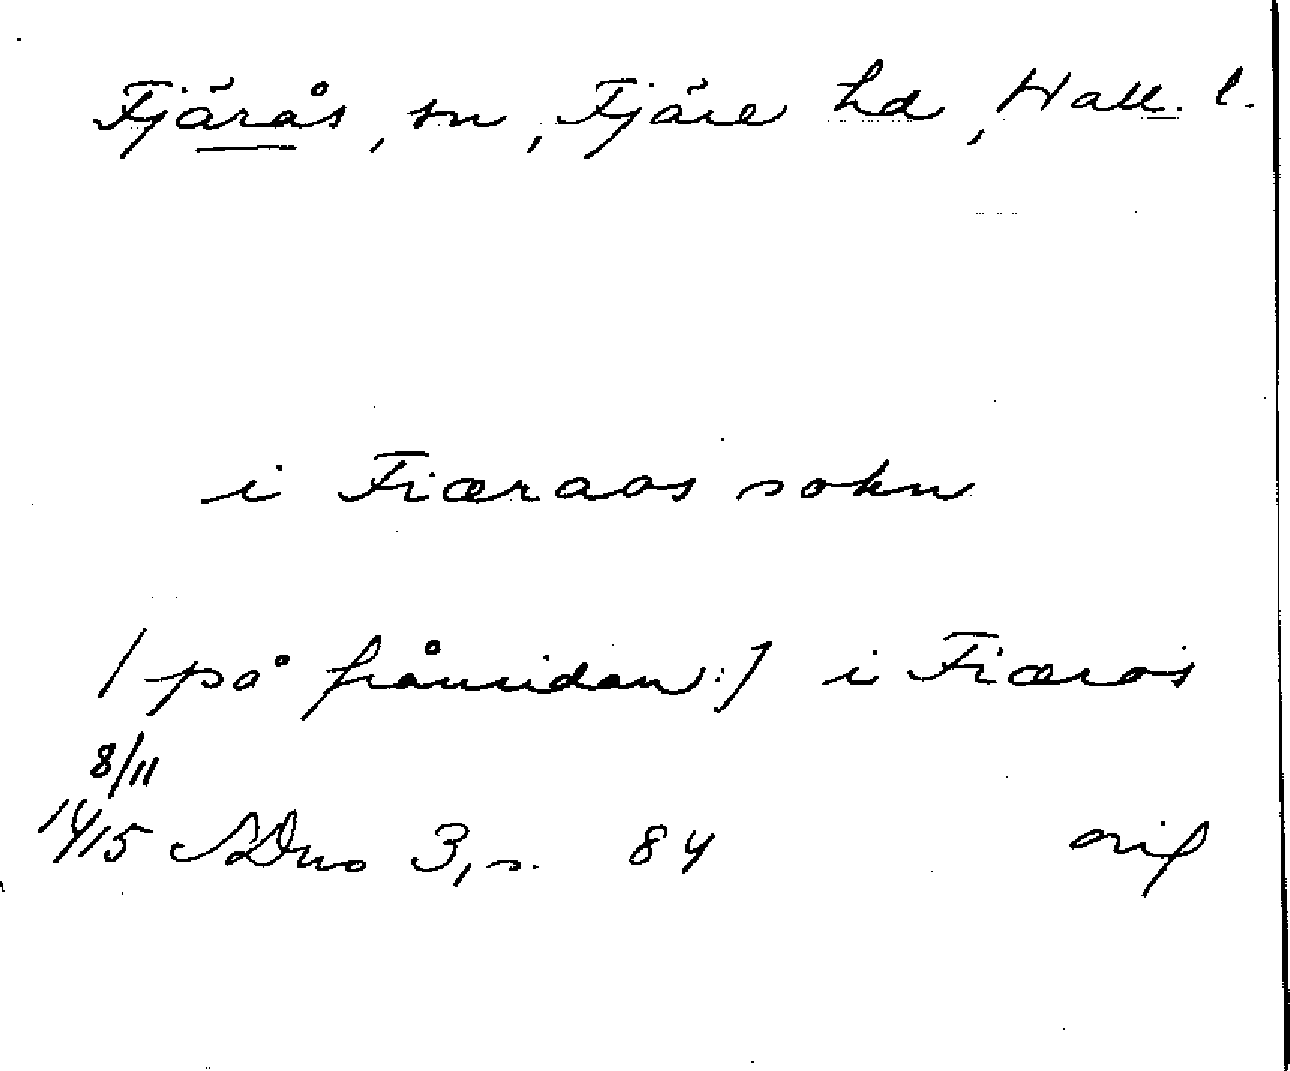 Fjärås, sn, Fjäre hd, Hall. l.
i Fiæraas sokn
/på frånsidan:/ i Fiæras
8/11
1415 SDns 3, s. 84 orig